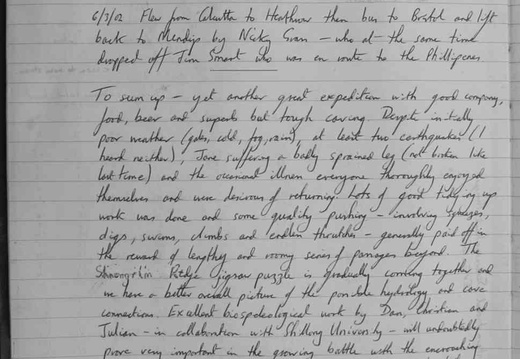 6/3/02 Flew from Calcutta to Heathrow then bus to Bristol and lift
back to Mendip by Nicky Gran - who at the same time
dropped off Jim Smart who was en route to the Phillipines
To sum up - yet another great expedition with good company,
food, beer and superb but tough caving. Despite initially
poor weather (gales, cold, fog, rain), at least two earthquakes (I
heard neither), Jane suffering a badly sprained leg (not broken like
last time) and the occasional illness everyone thoroughly enjoyed
themselves and were desirous of returning. Lots of good tidying up
work was done and some quality pushing - involving squeezes,
digs, swims, climbs and endless thrutches - generally paid off in
the reward of lengthy and roomy series of passages beyond. The
Shnongrim Ridge jigsaw puzzle is gradually coming together and
we have a better overall picture of the possible hydrology and cave
connections. Excellent biospeleological work by Dan, Christian and
Julian - in collaboration with Shillong University - will undoubtedly
prove very important in the growing battle with the encroaching